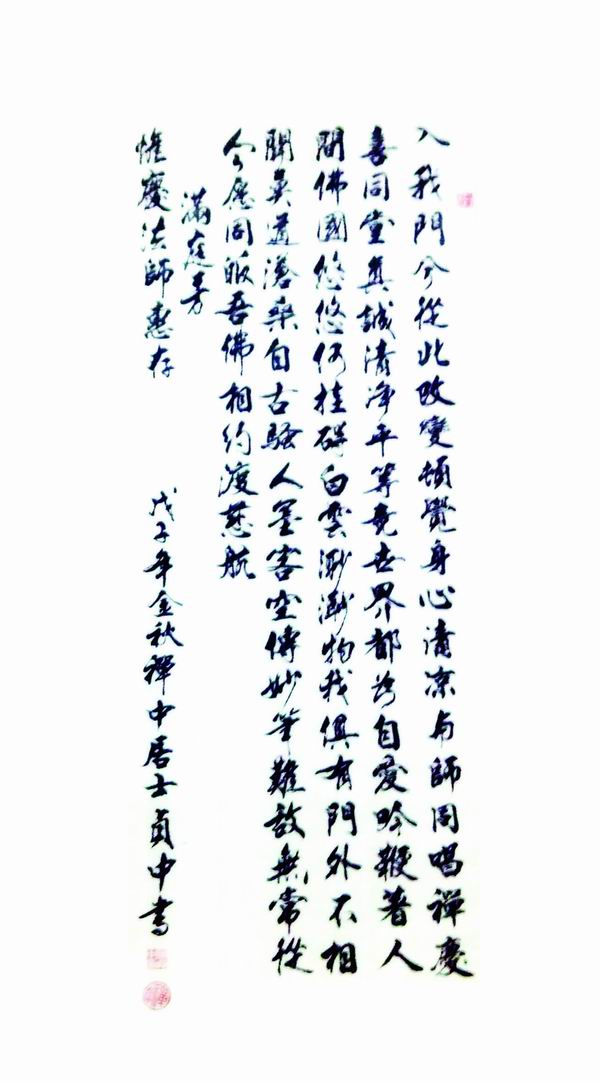 入我門兮從此改變頓覺身心清凉与師同唱禪慶
喜同堂真誠清净平等竟世界都为自愛吟鞭著人
間佛國悠悠何挂碍白雲渺渺物我俱有門外不相
關莫道滄桑自古騷人墨客空傳妙筆難敵無常從
今應同皈吾佛相約渡慈航
滿庭芳
惟慶法師惠存
戊子年金秋禪中居士貞中書